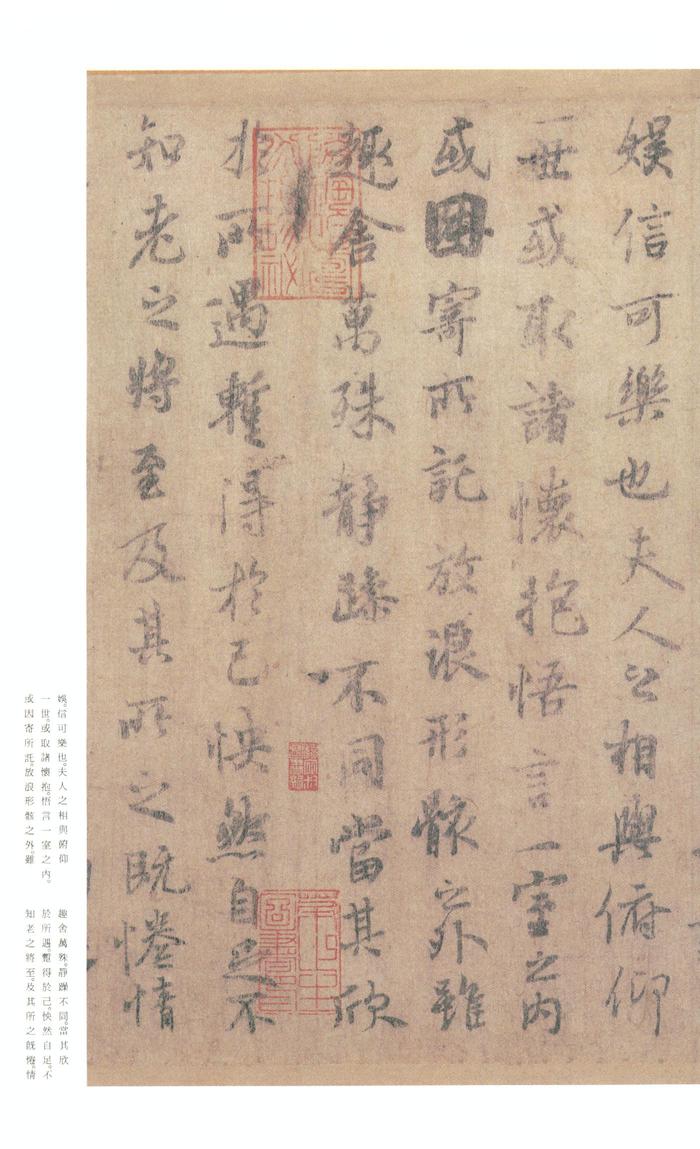 娛信可樂也夫人之相與俯仰
一世或取諸懷抱悟言一室之內
或因寄所託放浪形骸之外雖
趣舍萬殊靜躁不同當其欣
於所遇暫得於己怏然自足不
知老之將至及其所之既惓情
娛。信可樂也。夫人之相與俯仰
一世。或取諸懷抱。悟言一室之內。
或因寄所託。放浪形骸之外。雖
趣舍萬殊。靜躁不同。當其欣
於所遇。暫得於己。怏然自足。不
知老之將至。及其所之既惓。情